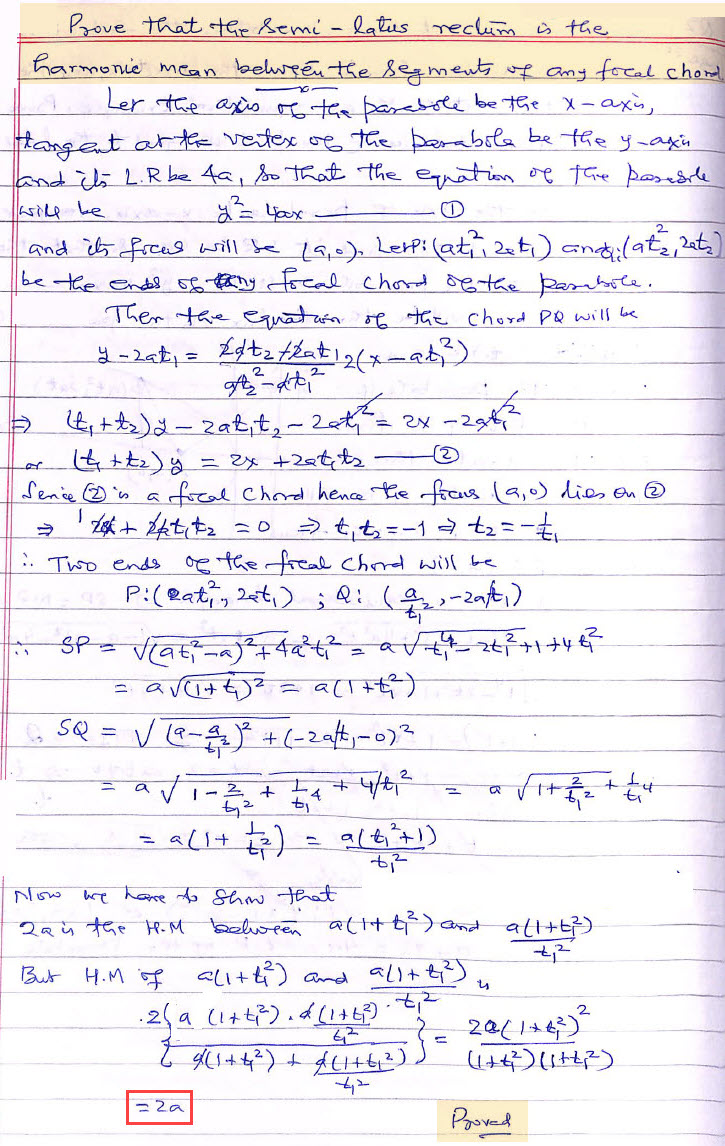 Prove that the semi-latus rectum is the
harmonic mean between the segments of any focal chord
Let the axis of the parabola be the x-axis,
tangent at the vertex of the parabola be the y-axis
and its L.R be 4a, so that the equation of the parabola
will be y² = 4ax ——— ①
and its focus will be (a,0). Let P:(at₁², 2at₁) and Q:(at₂², 2at₂)
be the ends of any focal chord of the parabola.
Then the equation of the chord PQ will be
y - 2at₁ = (2at₂ - 2at₁)/(at₂² - at₁²) (x - at₁²)
⇒ (t₁+t₂)y - 2at₁t₂ - 2at₁² = 2x - 2at₁²
or (t₁+t₂)y = 2x + 2at₁t₂ ——— ②
Since ② is a focal chord hence the focus (a,0) lies on ②
⇒ 2a + 2at₁t₂ = 0 ⇒ t₁t₂ = -1 ⇒ t₂ = -1/t₁
∴ Two ends of the focal chord will be
P:(at₁², 2at₁) ; Q: (a/t₁², -2a/t₁)
∴ SP = √((at₁²-a)² + 4a²t₁²) = a√(t₁⁴ - 2t₁² + 1 + 4t₁²)
= a√(1+t₁)² = a(1+t₁²)
SQ = √((a - a/t₁²)² + (-2a/t₁ - 0)²)
= a√(1 - 2/t₁² + 1/t₁⁴ + 4/t₁²) = a√(1 + 2/t₁² + 1/t₁⁴)
= a(1 + 1/t₁²) = a(t₁²+1)/t₁²
Now we have to show that
2a is the H.M between a(1+t₁²) and a(1+t₁²)/t₁²
But H.M of a(1+t₁²) and a(1+t₁²)/t₁² is
2{a(1+t₁²) . a(1+t₁²)/t₁² / (a(1+t₁²) + a(1+t₁²)/t₁²)} = 2a(1+t₁²)²/((1+t₁²)(1+t₁²))
= 2a
Proved